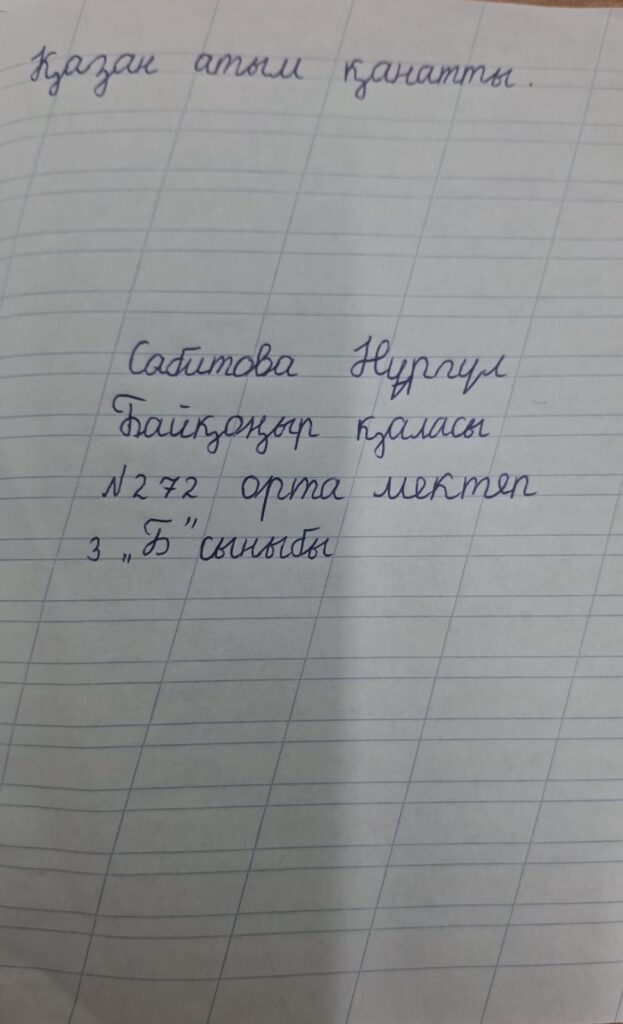 Қазан атым қанатты.
Сабитова Нұргүл
Байқоңыр қаласы
№272 орта мектеп
3 „Б" сыныбы